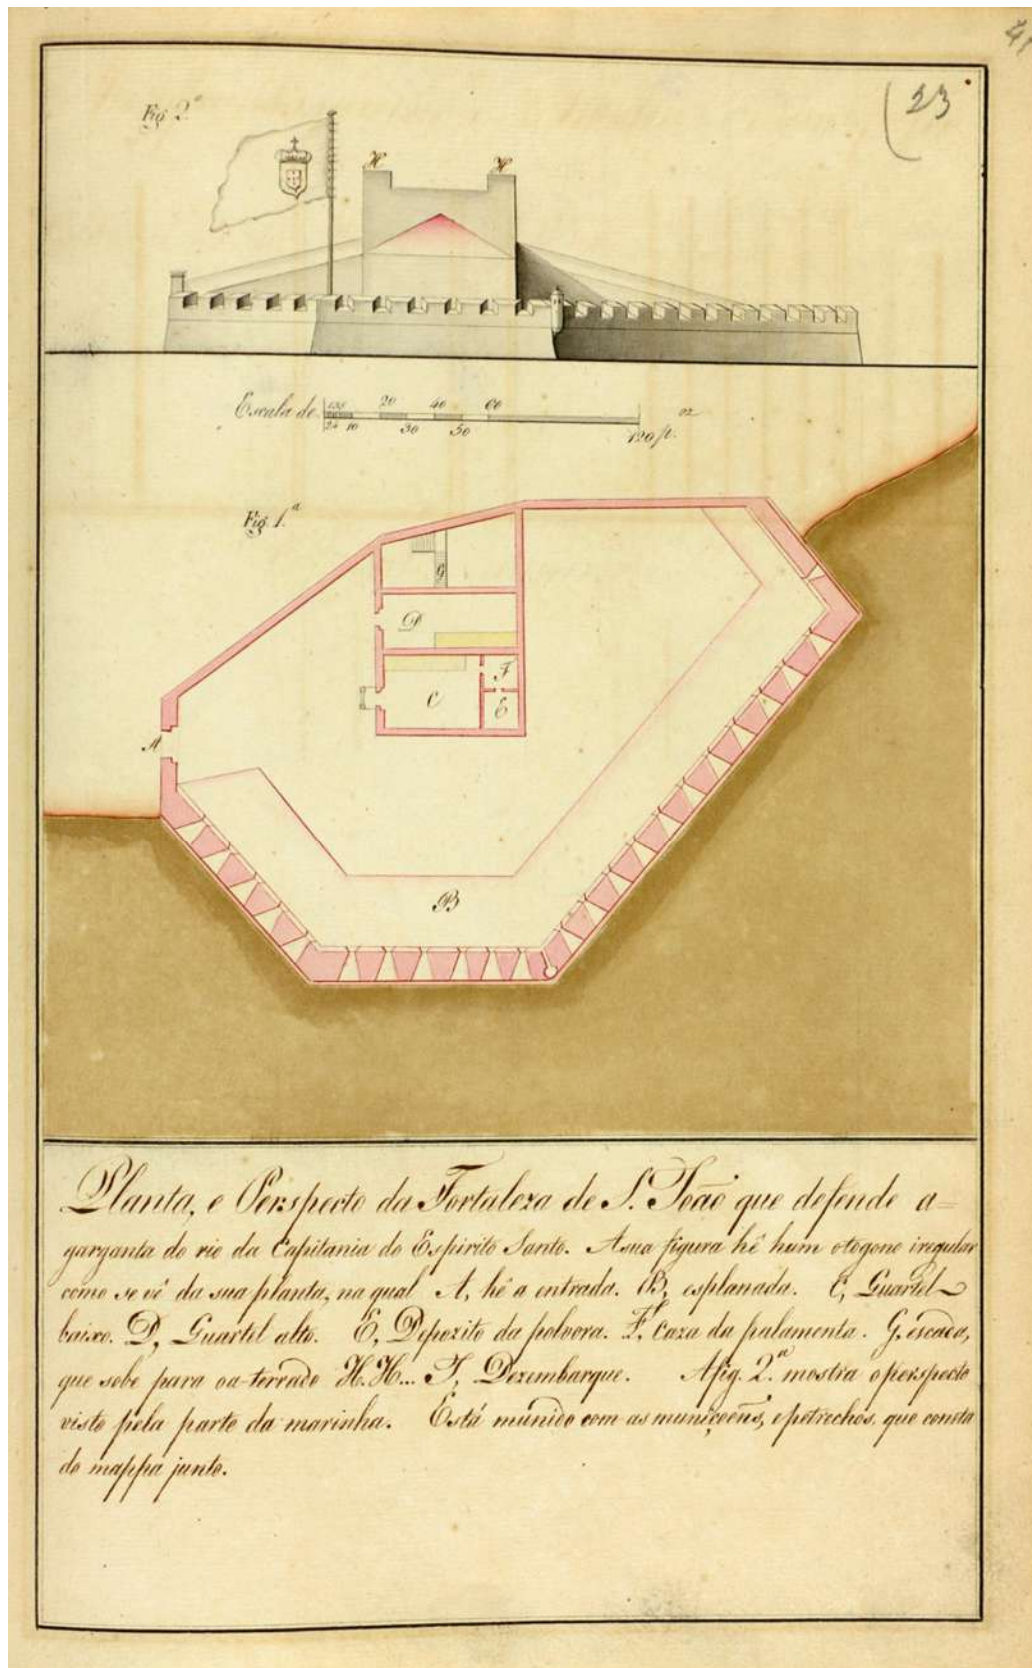 (23
Fig. 2.ª
H H
Escala de 20 40 60
10 30 50 120 p.
Fig. 1.ª
G
D
F
C E
A
B
Planta, e Perspecto da Fortaleza de S. João que defende a=
garganta do rio da Capitania do Espirito Santo. A sua figura hê hum otogono iregular
como se vê da sua planta, na qual A, hê a entrada. B, esplanada. C, Quartel
baixo. D, Quartel alto. E, Depozito da polvora. F, Caza da palamenta. G, escada,
que sobe para oa-terrado H.H... I, Dezembarque. Afig. 2.ª mostra operspecto
visto pela parte da marinha. Está munido com as muniçoeñs, epetrechos, que consta
do mappa junto.